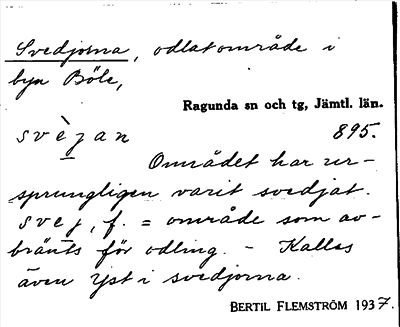 Svedjorna, odlat område i
byn Böle,
Ragunda sn och tg, Jämtl. län.
svè̱jan 895.
Området har ur-
sprungligen varit svedjat.
svej, f. = område som av-
bränts för odling. - Kallas
även Yst i svedjorna.
BERTIL FLEMSTRÖM 1937.